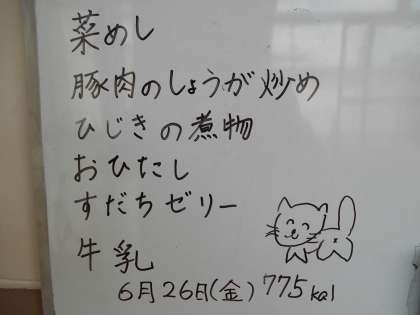 菜めし
豚肉のしょうが炒め
ひじきの煮物
おひたし
すだちゼリー
牛乳
6月26日(金) 775kal